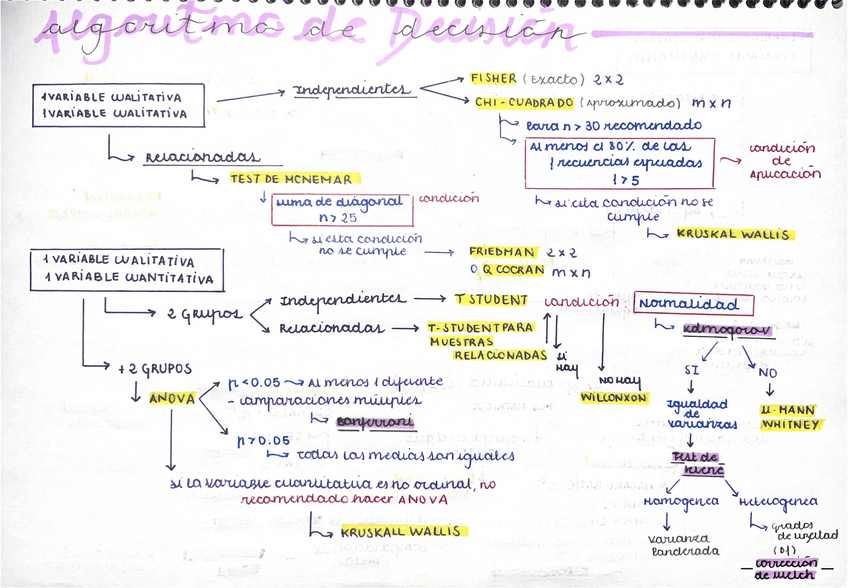 algoritmo de decisión
1 VARIABLE CUALITATIVA
1 VARIABLE CUALITATIVA
Independientes
FISHER (Exacto) 2 x 2
CHI-CUADRADO (aproximado) m x n
para n > 30 recomendado
al menos el 80% de las
frecuencias esperadas
f > 5
condición
de
aplicación
si esta condición no se
cumple
KRUSKAL WALLIS
Relacionadas
TEST DE MCNEMAR
suma de diagonal
n > 25
condición
si esta condición
no se cumple
FRIEDMAN 2 x 2
O, Q COCRAN m x n
1 VARIABLE CUALITATIVA
1 VARIABLE CUANTITATIVA
2 Grupos
Independientes
T STUDENT
condición:
Normalidad
Relacionadas
T-STUDENT PARA
MUESTRAS
RELACIONADAS
si
hay
NO HAY
WILCONXON
Kolmogorov
SI
NO
U. MANN
WHITNEY
Igualdad
de
varianzas
Test de
levene
Homogenea
varianza
ponderada
Heterogenea
grados
de libertad
(Df)
corrección
de welch
+ 2 GRUPOS
ANOVA
p < 0.05 → Al menos 1 diferente
- comparaciones múltiples
Bonferroni
p > 0.05
Todas las medias son iguales
si la variable cuantitativa es no ordinal, no
recomendado hacer ANOVA
KRUSKALL WALLIS